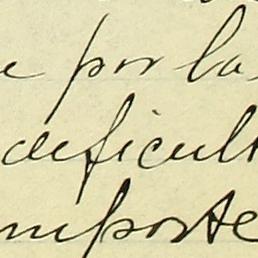 e por la
deficult
mporte